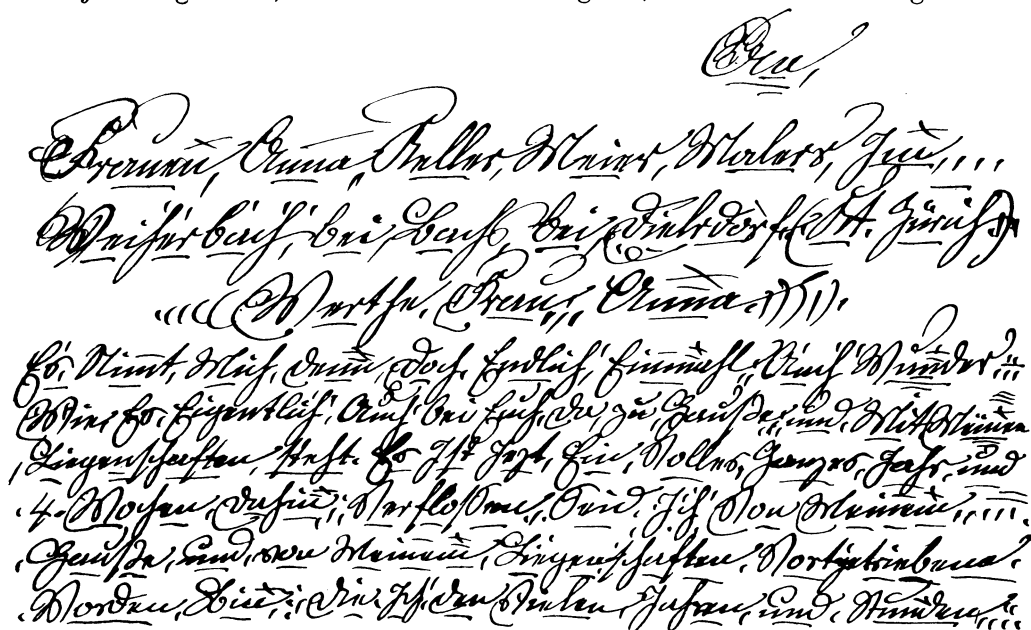 An,
Frauen, Anna, Keller, Meier, Malers, Zu,,,,
Weiherbach, bei, Bachs, bei, Dielsdorf, (Kt. Zürich)
,,,,((Werthe, Frau,,, Anna.)))).
Es, Nimt, Mich, denn, doch, Endlich, Einmahl, Auch Wunder
Wie, Es, Eigentlich, Auch bei Euch, da, zu, Hauße, und, Mit Meinen
Liegenschaften, steht. Es Ist Jezt, Ein, Volles, Ganzes, Jahr, und
.4. Wochen, dahin, Verfloßen, Seid, Ich, Von Meinem,,,,
Hauße, und, von Meinem, Liegenschaften, Vortgetriebene
Worden, Bin, die, Ich, den Vielen, Jahren, und, Stunden,,,,